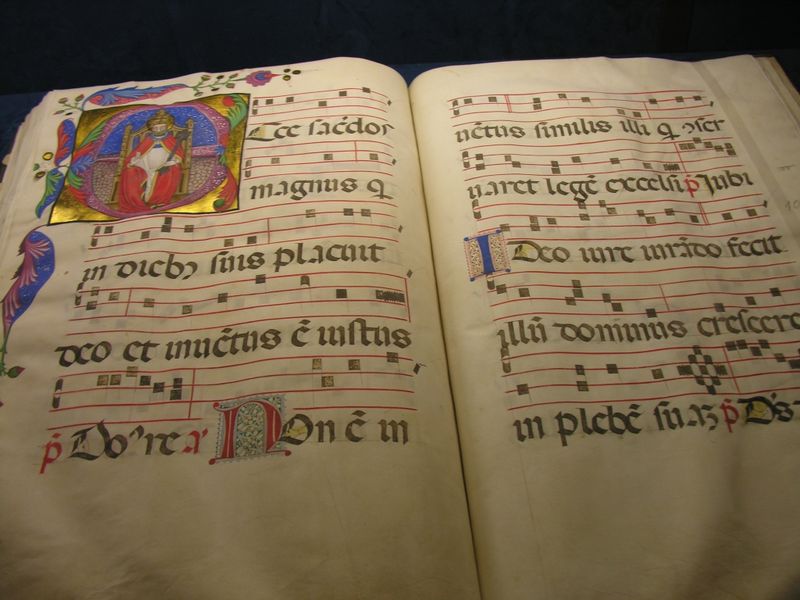 Ecce sac̄dos
magnus q̄
in diebꝫ suis placuit
deo et invētus ē iustus
p̄ Do're a' Non ē in
vētus similis illi q̄ ɔser
uaret legē excelsi p̄ Jubi
Ideo iure iurādo fecit
illū dominus crescere
in plebē suaꝫ p̄ Ds